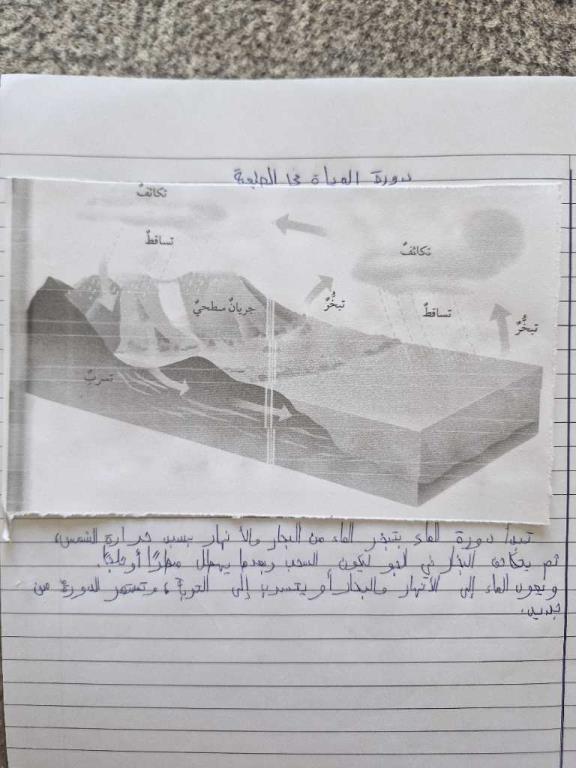 دورة المياه في الطبيعة
تكاثفٌ
تساقطٌ
تكاثفٌ
جريانٌ سطحيٌّ
تبخُّرٌ
تساقطٌ
تبخُّرٌ
تسربٌ
تبدأ دورة الماء بتبخر الماء من البحار والأنهار بسبب حرارة الشمس،
ثم يتكاثف البخار في الجو ليكون السحب وبعدها يهطل مطرًا أو ثلجًا.
ويعود الماء إلى الأنهار والبحار أو يتسرب إلى التربة، وتستمر الدورة من
جديد.